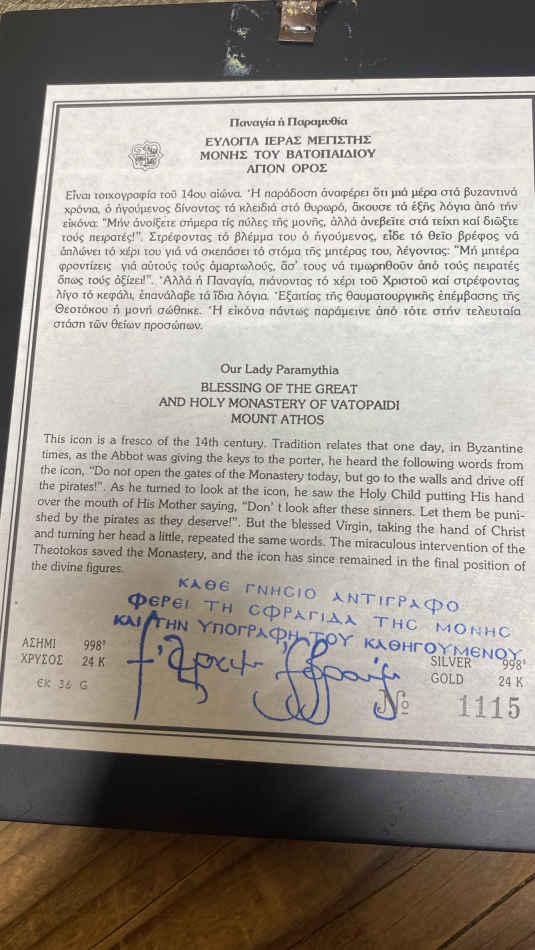 Παναγία ἡ Παραμυθία
ΕΥΛΟΓΙΑ ΙΕΡΑΣ ΜΕΓΙΣΤΗΣ
ΜΟΝΗΣ ΤΟΥ ΒΑΤΟΠΑΙΔΙΟΥ
ΑΓΙΟΝ ΟΡΟΣ
Εἶναι τοιχογραφία τοῦ 14ου αἰώνα. Ἡ παράδοση ἀναφέρει ὅτι μιά μέρα στά βυζαντινά
χρόνια, ὁ ἡγούμενος δίνοντας τά κλειδιά στό θυρωρό, ἄκουσε τά ἑξῆς λόγια ἀπό τήν
εἰκόνα: "Μήν ἀνοίξετε σήμερα τίς πύλες τῆς μονῆς, ἀλλά ἀνεβεῖτε στά τείχη καί διῶξτε
τούς πειρατές!". Στρέφοντας τό βλέμμα του ὁ ἡγούμενος, εἶδε τό θεῖο βρέφος νά
ἁπλώνει τό χέρι του γιά νά σκεπάσει τό στόμα τῆς μητέρας του, λέγοντας: "Μή μητέρα
φροντίζεις γιά αὐτούς τούς ἁμαρτωλούς, ἄσ' τους νά τιμωρηθοῦν ἀπό τούς πειρατές
ὅπως τούς ἀξίζει!". Ἀλλά ἡ Παναγία, πιάνοντας τό χέρι τοῦ Χριστοῦ καί στρέφοντας
λίγο τό κεφάλι, ἐπανάλαβε τά ἴδια λόγια. Ἐξαιτίας τῆς θαυματουργικῆς ἐπέμβασης τῆς
Θεοτόκου ἡ μονή σώθηκε. Ἡ εἰκόνα πάντως παράμεινε ἀπό τότε στήν τελευταία
στάση τῶν θείων προσώπων.
Our Lady Paramythia
BLESSING OF THE GREAT
AND HOLY MONASTERY OF VATOPAIDI
MOUNT ATHOS
This icon is a fresco of the 14th century. Tradition relates that one day, in Byzantine
times, as the Abbot was giving the keys to the porter, he heard the following words from
the icon, "Do not open the gates of the Monastery today, but go to the walls and drive off
the pirates!". As he turned to look at the icon, he saw the Holy Child putting His hand
over the mouth of His Mother saying, "Don' t look after these sinners. Let them be puni-
shed by the pirates as they deserve!". But the blessed Virgin, taking the hand of Christ
and turning her head a little, repeated the same words. The miraculous intervention of the
Theotokos saved the Monastery, and the icon has since remained in the final position of
the divine figures.
ΚΑΘΕ ΓΝΗΣΙΟ ΑΝΤΙΓΡΑΦΟ
ΦΕΡΕΙ ΤΗ CΦΡΑΓΙΔΑ ΤΗC ΜΟΝΗC
ΚΑΙ ΤΗΝ ΥΠΟΓΡΑΦΗ ΤΟΥ ΚΑΘΗΓΟΥΜΕΝΟΥ
ΑΣΗΜΙ 998°
ΧΡΥΣΟΣ 24 Κ
ΕΚ 36 G
SILVER 998°
GOLD 24 K
№ 1115